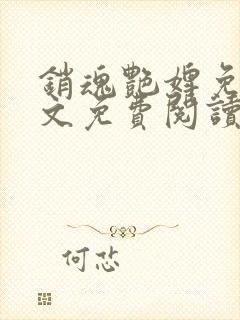 銷魂艷婢免
文免費閱讀
何忿